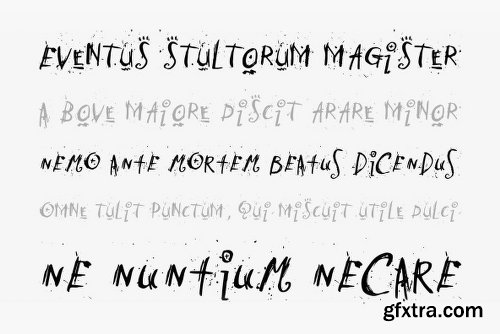 EVENTUS STULTORUM MAGISTER
A BOVE MAIORE DISCIT ARARE MINOR
NEMO ANTE MORTEM BEATUS DICENDUS
OMNE TULIT PUNCTUM, QUI MISCUIT UTILE DULCI
NE NUNTIUM NECARE
gfxtra.com